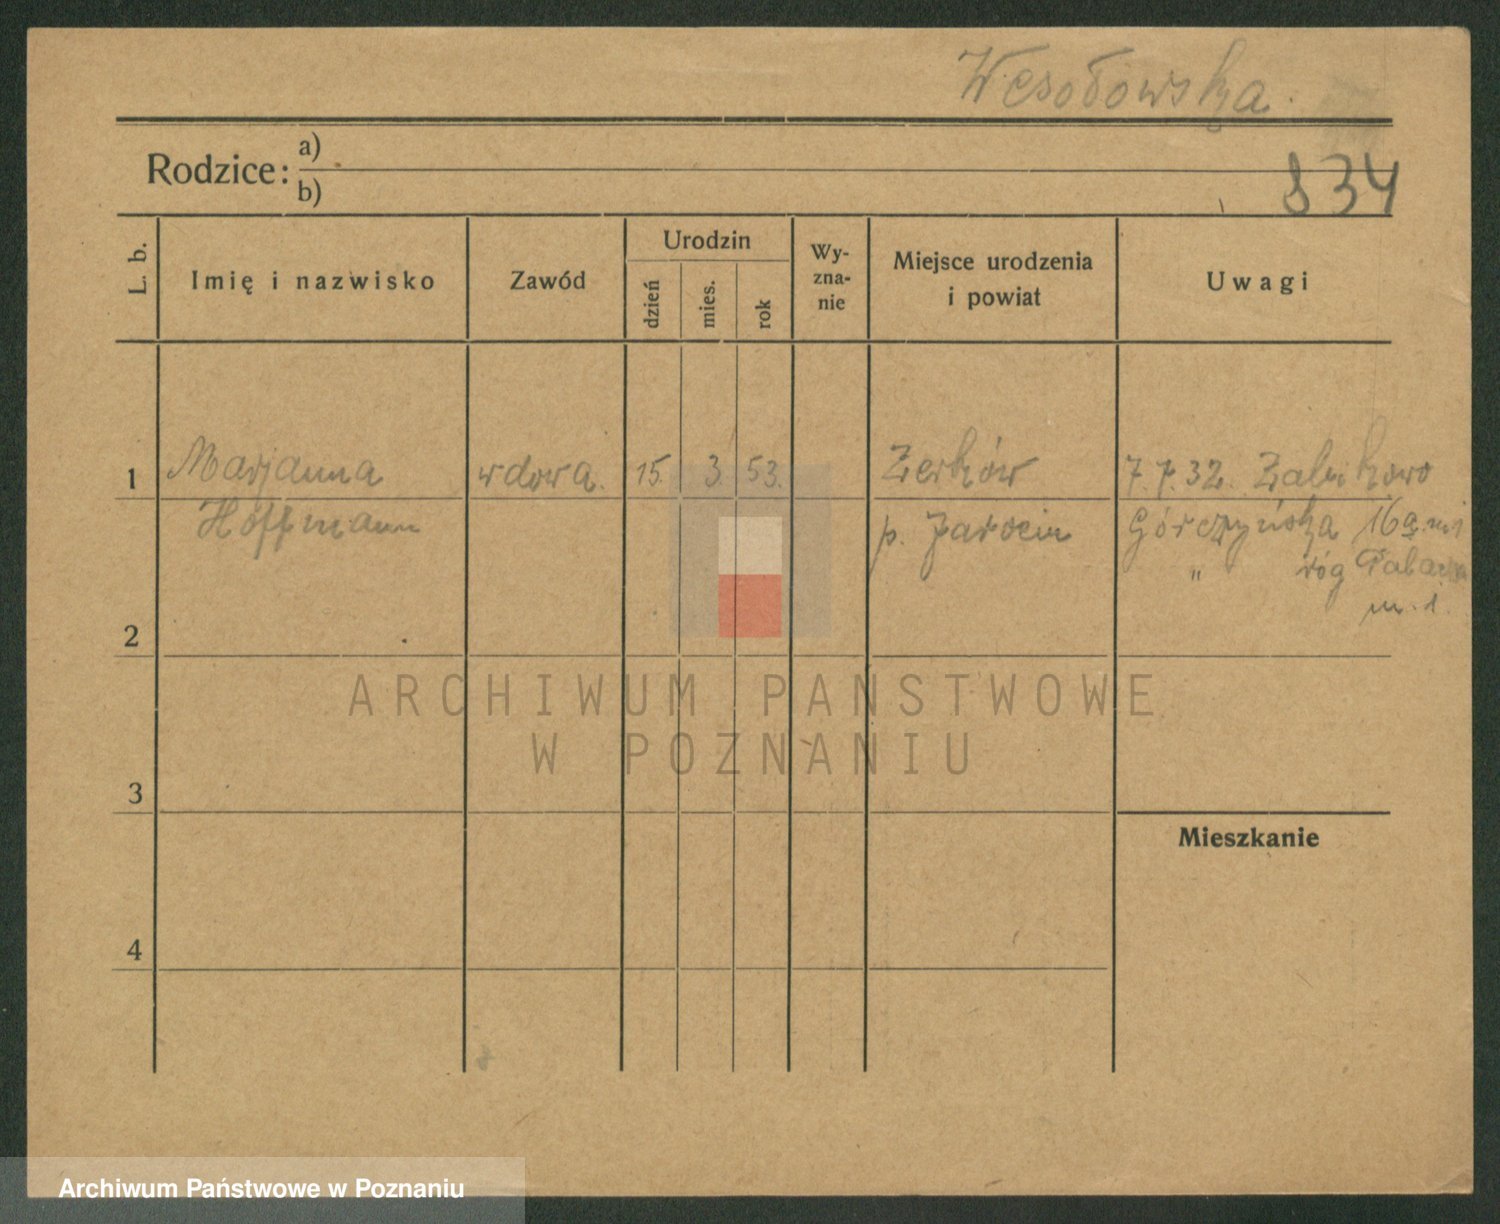 Wesołowska.
Rodzice: a)
b)
834
L. b.
Imię i nazwisko
Zawód
Urodzin
dzień
mies.
rok
Wy-
zna-
nie
Miejsce urodzenia
i powiat
Uwagi
1 Marjanna wdowa. 15. 3. 53. Żerków 7.7.32. Żabikowo
Hoffmann p. Jarocin Górczyńska 16
" róg
m. 1.
2
3
4
Mieszkanie
ARCHIWUM PAŃSTWOWE
W POZNANIU
Archiwum Państwowe w Poznaniu